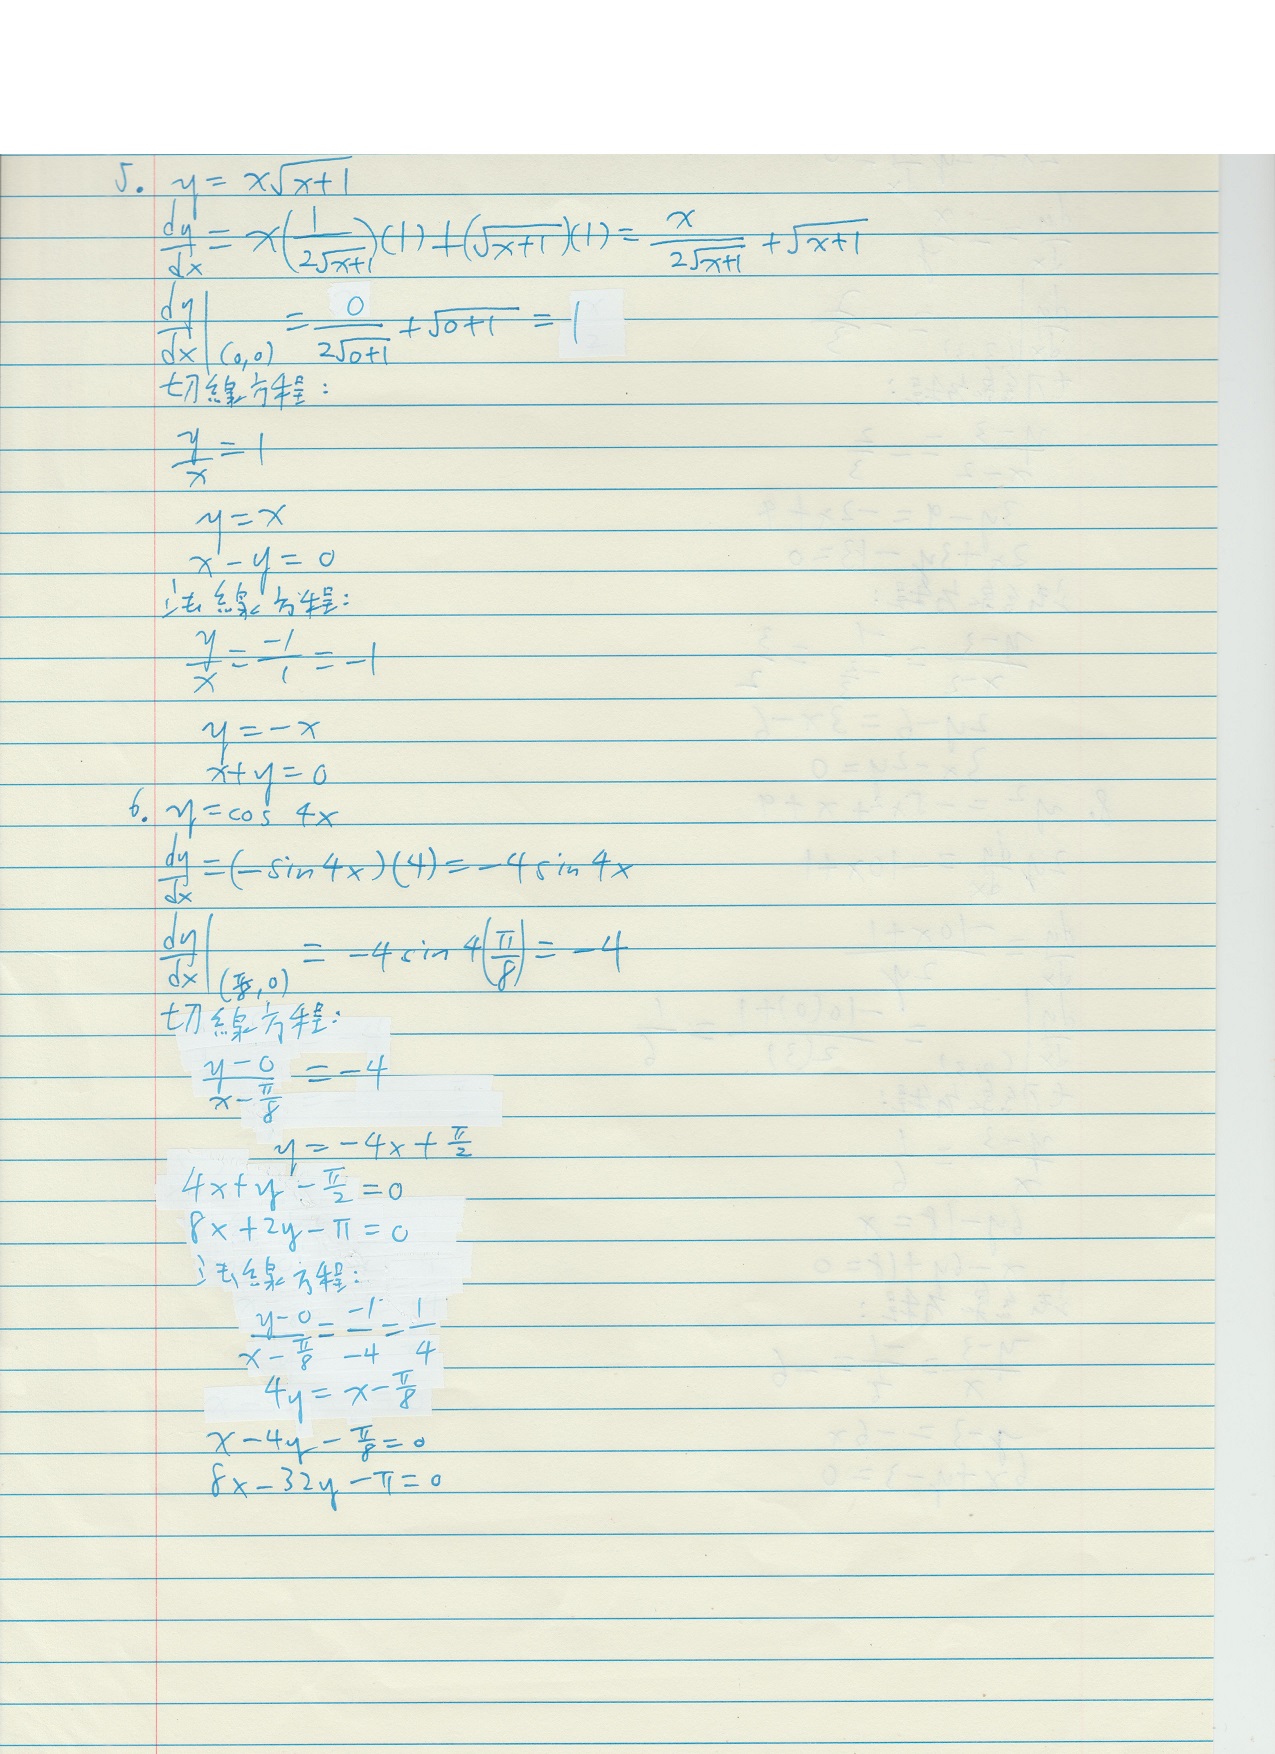 5. y = x√(x+1)
dy/dx = x(1/(2√(x+1)))(1) + (√(x+1))(1) = x/(2√(x+1)) + √(x+1)
dy/dx|(0,0) = 0/(2√(0+1)) + √(0+1) = 1
切線方程:
y/x = 1
y = x
x - y = 0
法線方程:
y/x = -1/1 = -1
y = -x
x + y = 0
6. y = cos 4x
dy/dx = (-sin 4x)(4) = -4 sin 4x
dy/dx|(π/8, 0) = -4 sin 4(π/8) = -4
切線方程:
(y-0)/(x-π/8) = -4
y = -4x + π/2
4x + y - π/2 = 0
8x + 2y - π = 0
法線方程:
(y-0)/(x-π/8) = -1/-4 = 1/4
4y = x - π/8
x - 4y - π/8 = 0
8x - 32y - π = 0